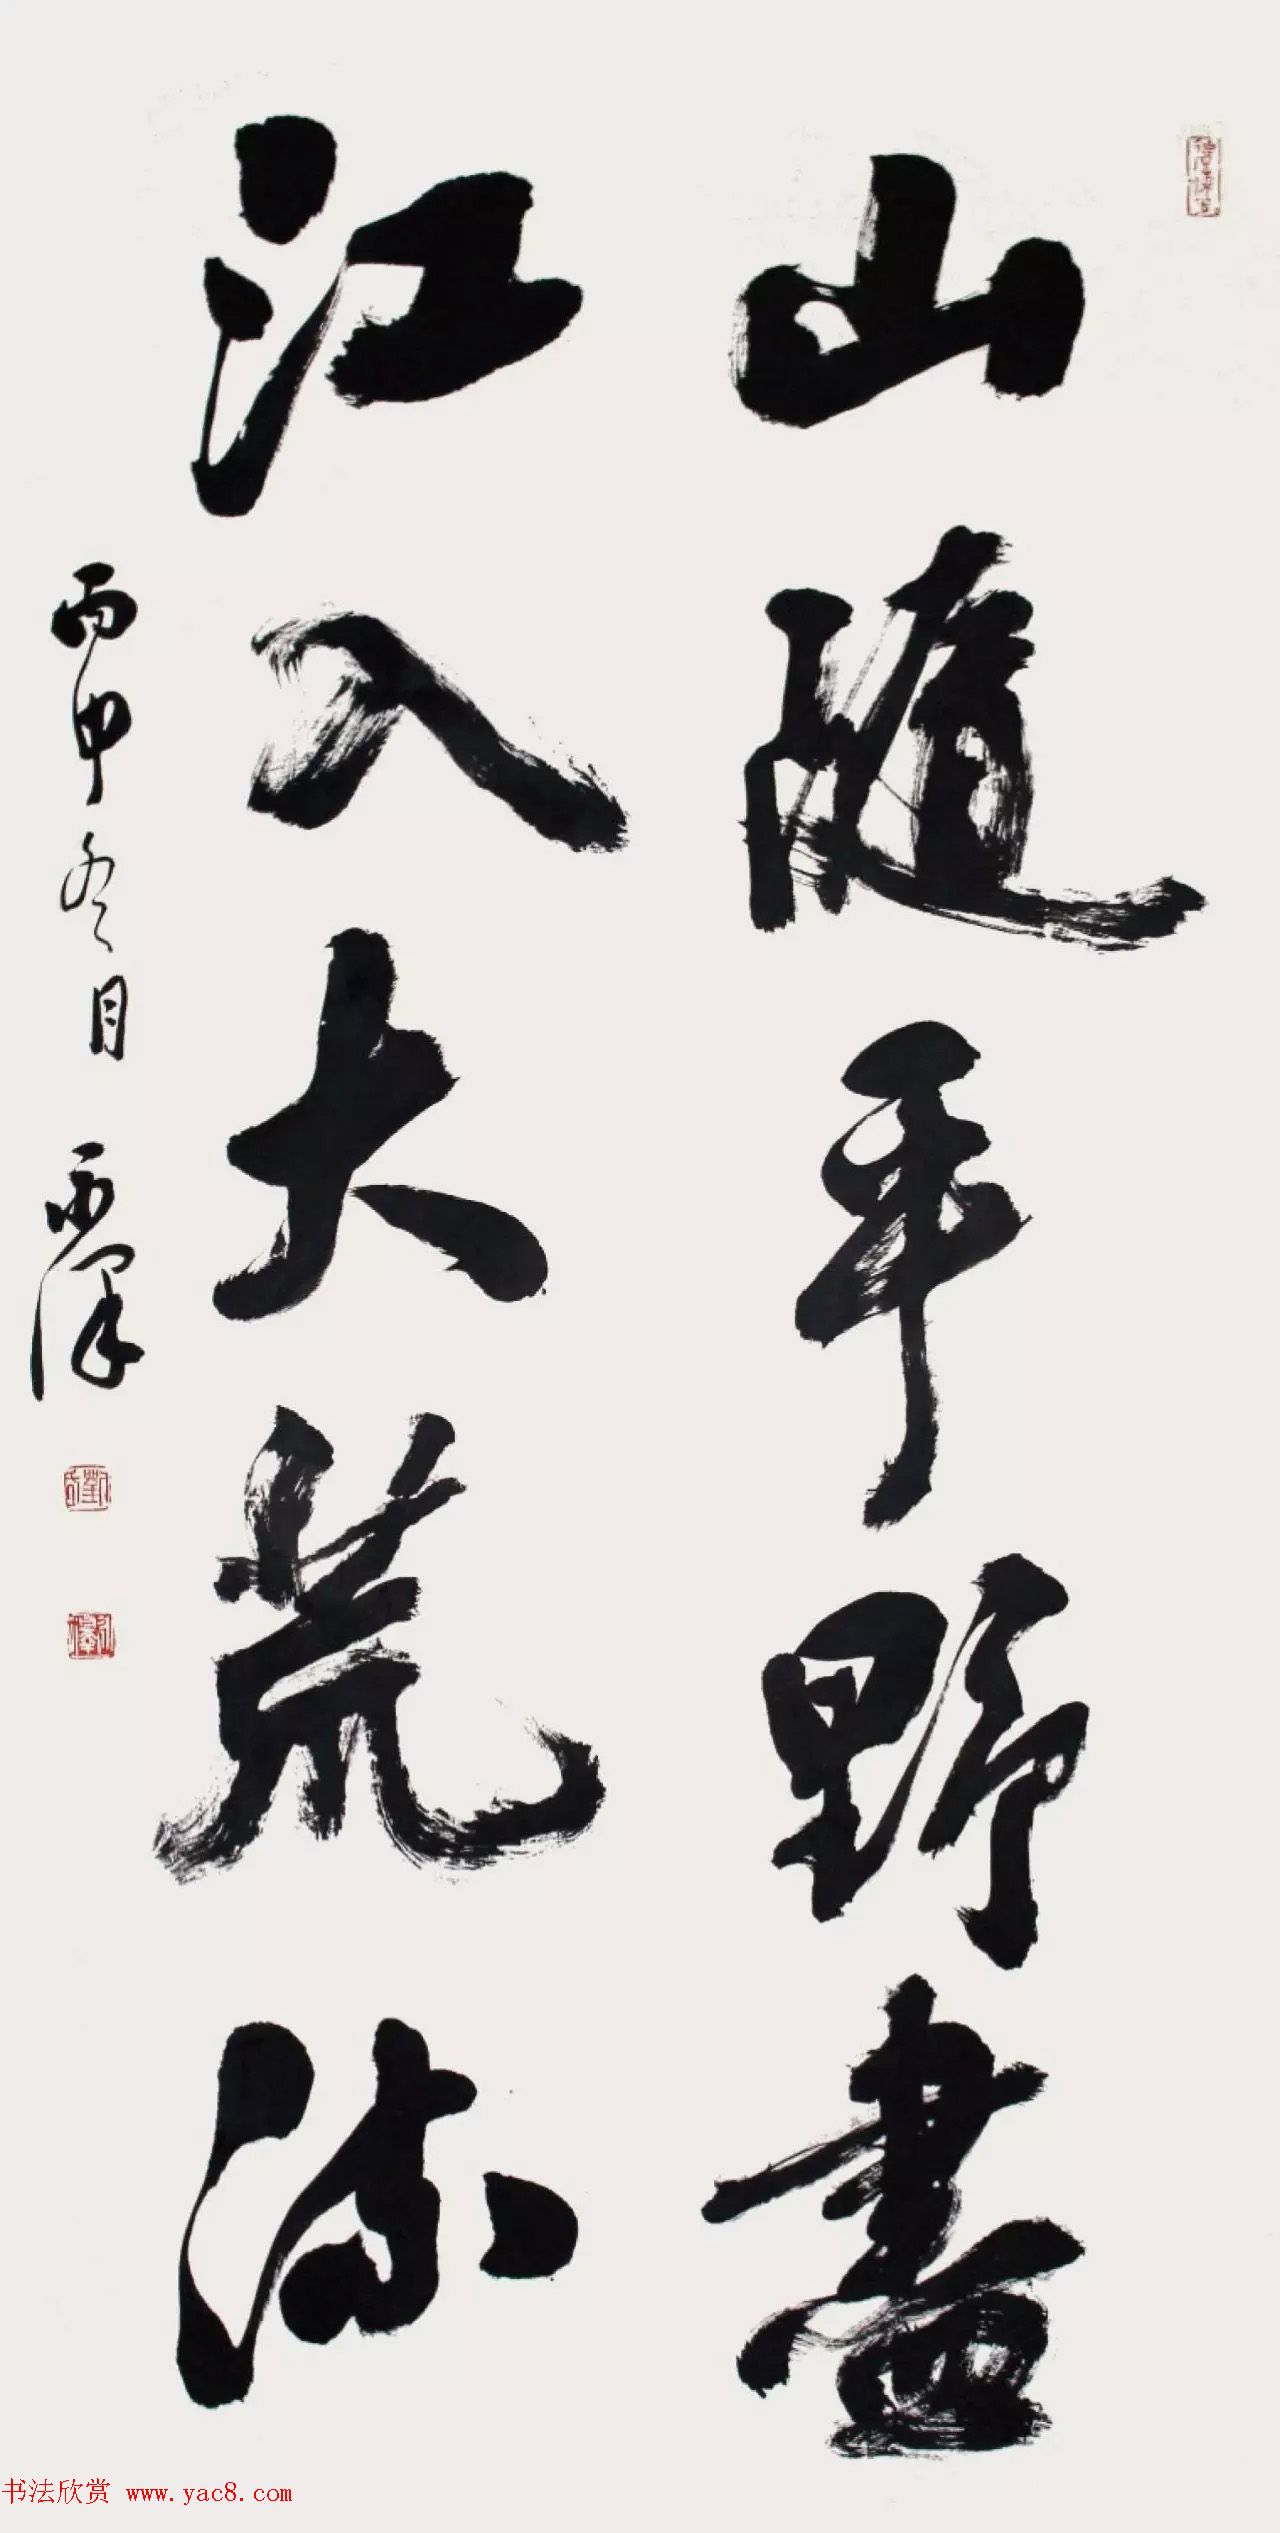 山隨平野盡
江入大荒流
丙申冬月
书法欣赏 www.yac8.com